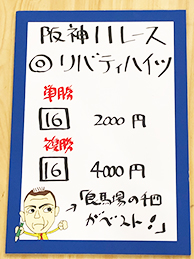 阪神11レース
◎リバティハイツ
単勝
16 2000円
複勝
16 4000円
「良馬場の千四
がベスト!」